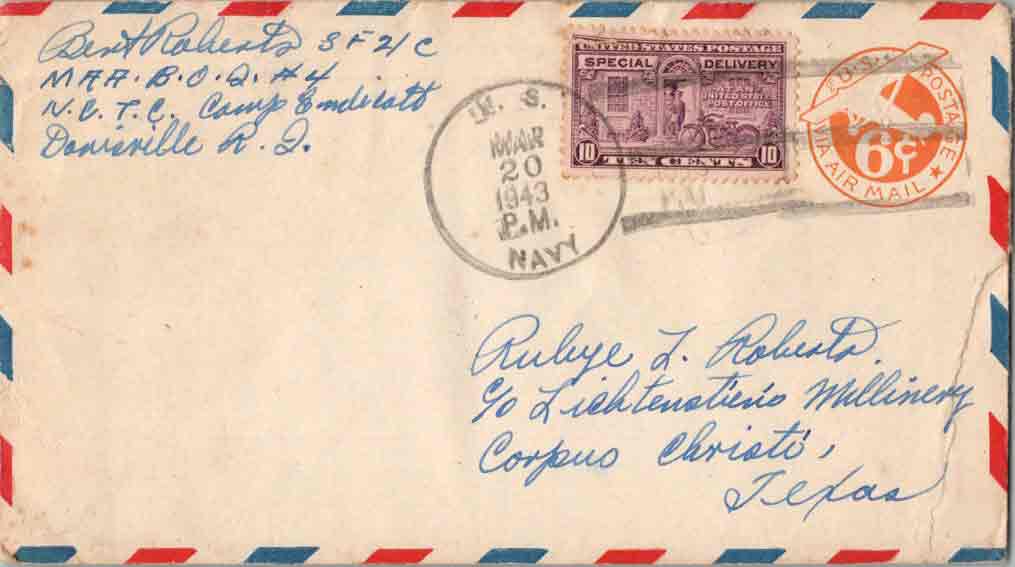 Bert Roberts SF2/C
MAA. B.O.Q. #4
N.C.T.C. Camp Endicott
Davisville R.I.
UNITED STATES POSTAGE
SPECIAL DELIVERY
AT ANY
UNITED STATES
POST OFFICE
10 TEN CENTS 10
U.S. POSTAGE
6¢
VIA AIR MAIL
U. S.
MAR
20
1943
P.M.
NAVY
Rubye L. Roberts
c/o Lichtenstiens Millinery
Corpus Christi,
Texas